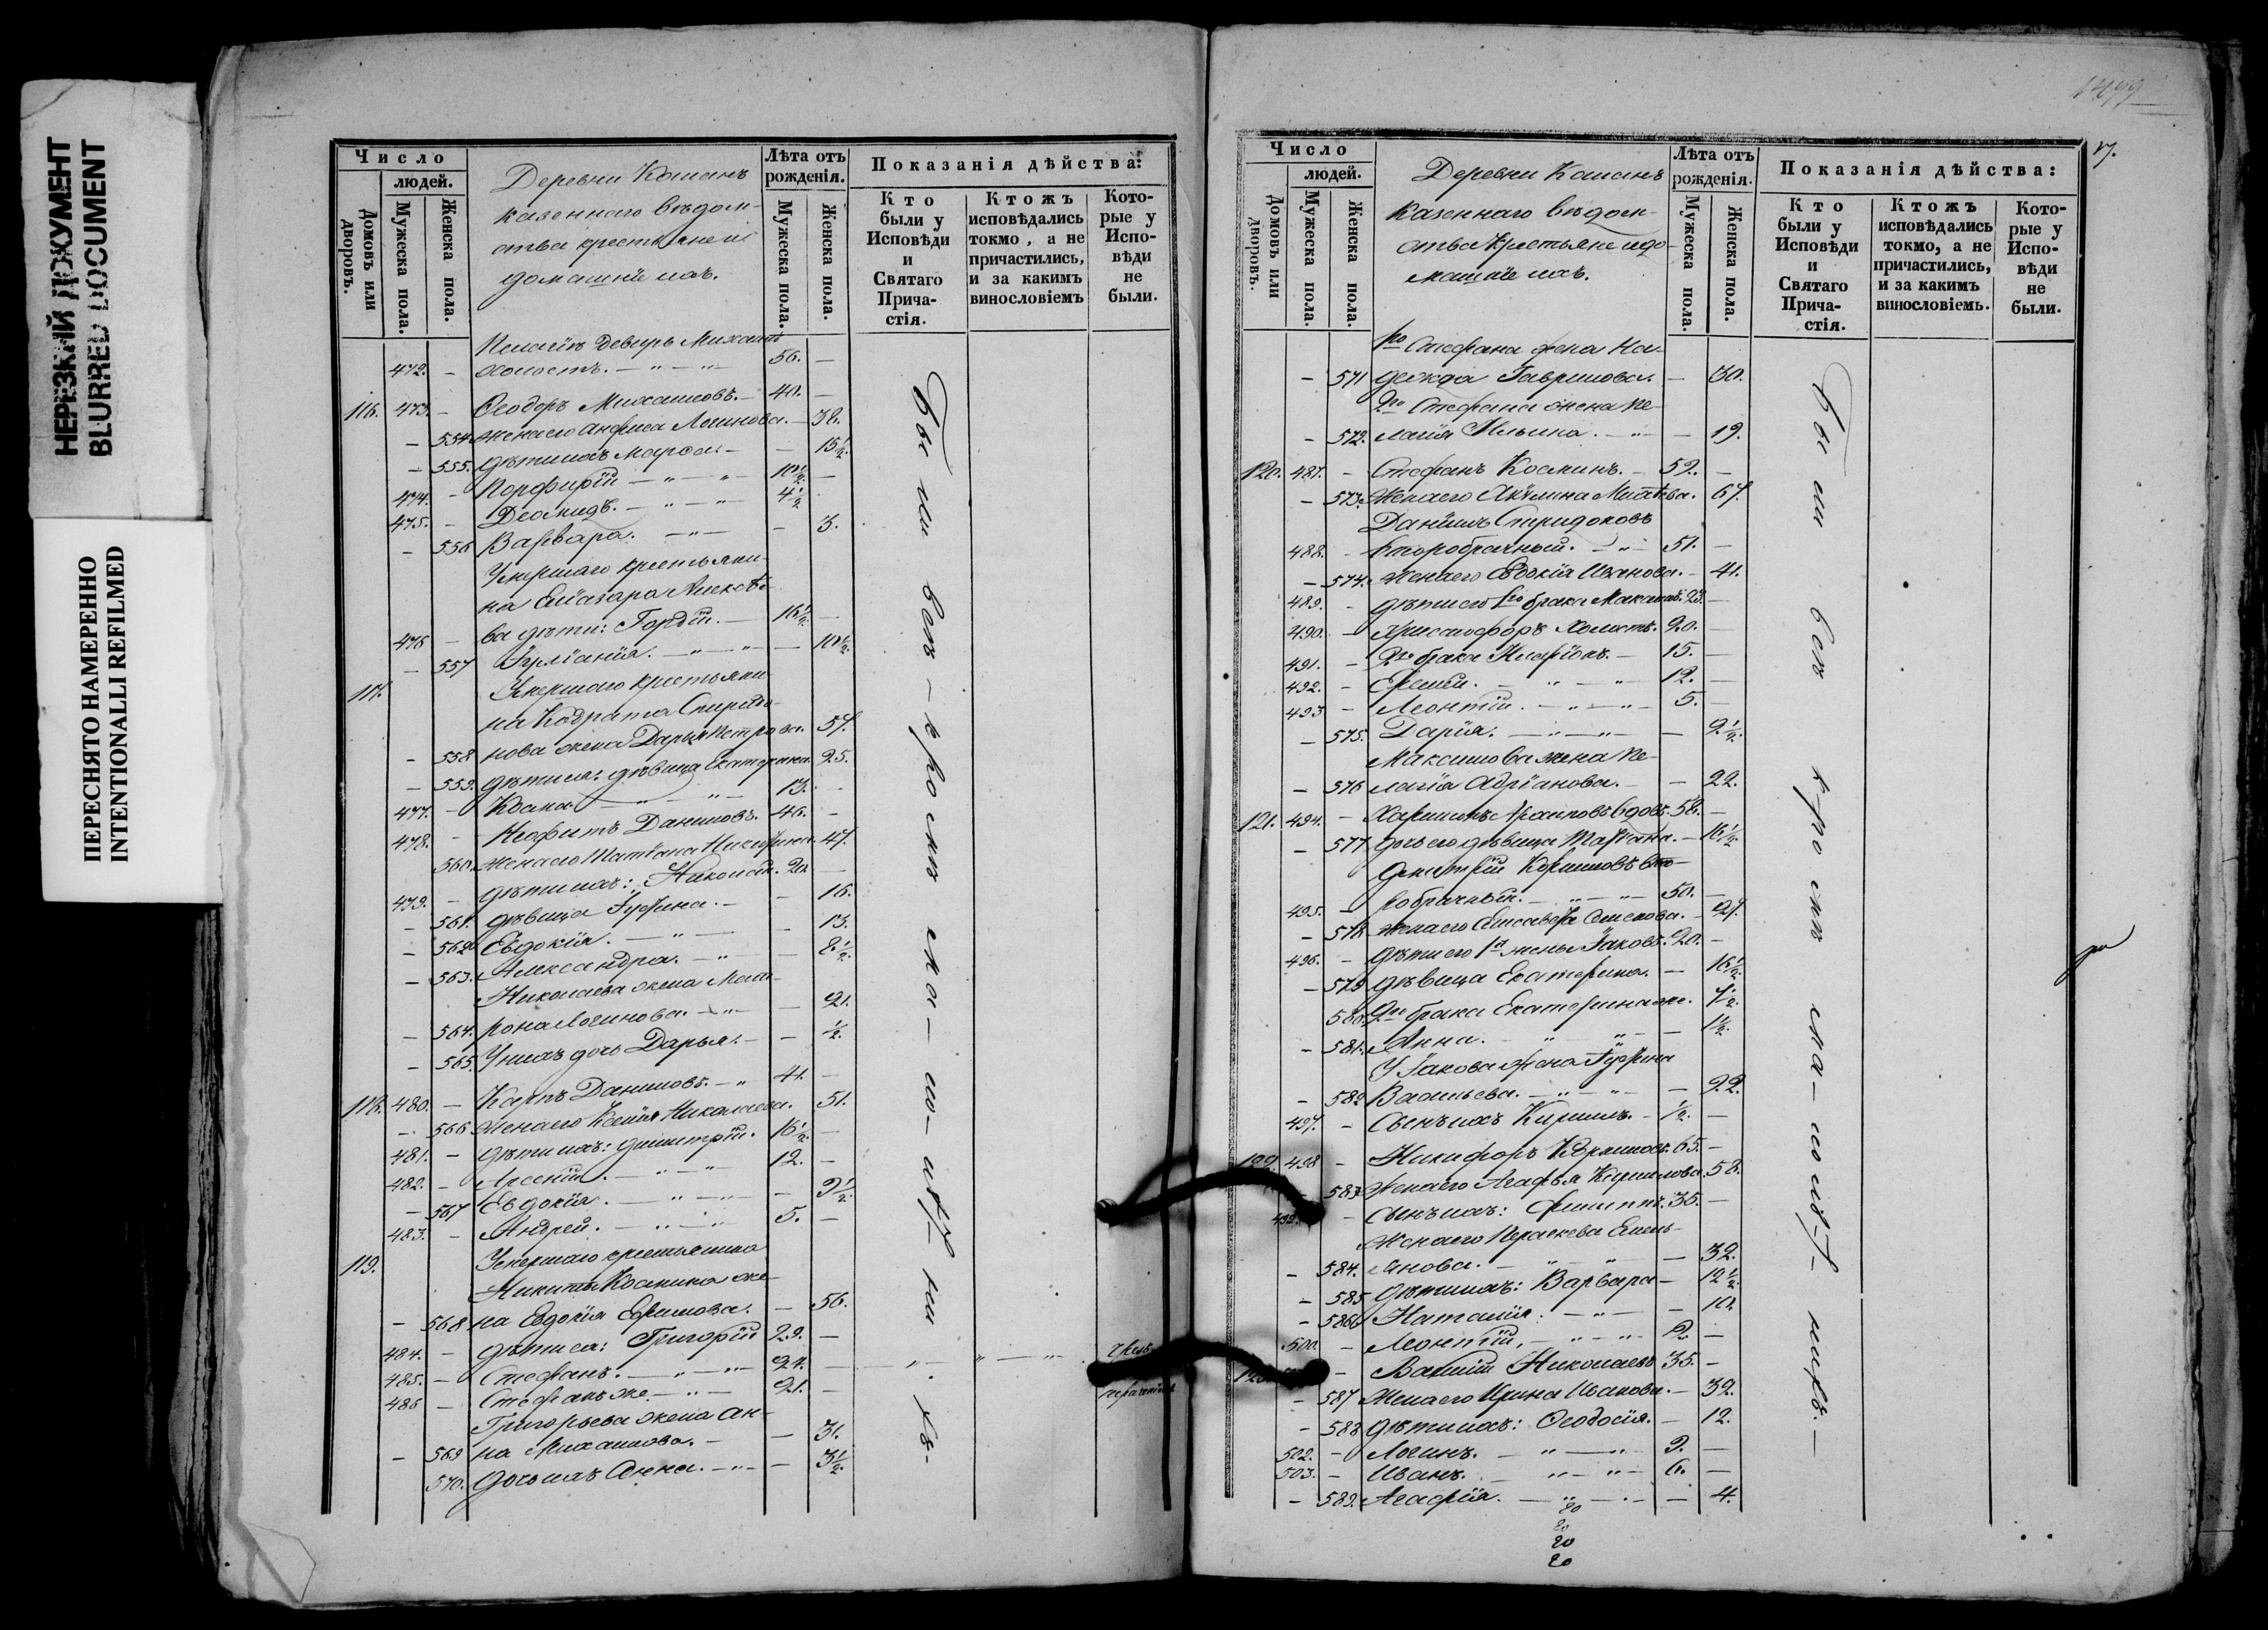 НЕРЕЗКИЙ ДОКУМЕНТ
BLURRED DOCUMENT
ПЕРЕСНЯТО НАМЕРЕННО
INTENTIONALLI REFILMED
Число
людей.
Домовъ или дворовъ.
Мужеска пола.
Женска пола.
Деревни
казеннаго вѣдом-
ства крестьяне и
домашніе ихъ.
Лѣта отъ рожденія.
Мужеска пола.
Женска пола.
Показанія дѣйства:
Кто были у Исповѣди и Святаго Причастія.
Ктожъ исповѣдались токмо, а не причастились, и за какимъ винословіемъ
Которые у Исповѣди не были.
Пелагіи деверь Михаилъ
472. – холостъ. – " – " – 56. –
116. 473. – Ѳеодоръ Михаиловъ. – 40. –
– 554 жена его Анфиса Логинова. – 38.
– 555. дѣти ихъ Марѳа. – – 15½
474. – Порфирій – " – " 10½ –
475. – Деомидъ. – " – " – 4½
– 556 Варвара. – " – – 3.
Умершаго крестьяни-
на Еліазара Алексѣе-
476 – ва дѣти: Гордій. – 16½ –
– 557 Іуліанія. – " – " – – 10½
117. Умершаго крестьяни-
на Кодрата Спиридо-
– 558 нова жена Дарья Петрова. 57.
– 559. дѣти ея: дѣвица Екатерина. 25.
477. – – " – " 13. –
478. – Неофитъ Даниловъ. 46. –
560. жена его Татіана 47.
479. – дѣти ихъ: Николай. 20. –
– 561. дѣвица Іустина. – – 16.
– 562 Евдокія. – " – – 13.
– 563. Александра. – " – – 8½
Николаева жена Мат-
– 564. рона Логинова. – " – – 21.
– 565. У нихъ дочь Дарья. – – ½
118. 480. – Карпъ Даниловъ. – " 41. –
– 566 жена его Ксенія Николаева. 51.
481. – дѣти ихъ: Димитрій. 16½ –
482. – Арсеній. – " – " 12. –
– 567 Евдокія. – " – " – – 9½
483. – Андрей. – " – " 5. –
119. Умершаго крестьянина
Никиты Космина же-
– 568 на Евдокія Ефимова. – 56.
484. – дѣти ея: Григорій 29. –
485. – Стефанъ. – " – " 24. – – " – " – "
486 – Стефанъ же – " – 21. –
Григорьева жена Ан-
– 569 на Михаилова. – – 31.
570. дочь ихъ Анна. – " – – 3½
Были всѣ – кромѣ
1499
17.
Число
людей.
Домовъ или дворовъ.
Мужеска пола.
Женска пола.
Деревни
казеннаго вѣдом-
ства крестьяне и до-
машніе ихъ.
Лѣта отъ рожденія.
Мужеска пола.
Женска пола.
Показанія дѣйства:
Кто были у Исповѣди и Святаго Причастія.
Ктожъ исповѣдались токмо, а не причастились, и за какимъ винословіемъ.
Которые у Исповѣди не были.
1го Стефана жена На-
– 571 дежда Гаврилова. – 30.
2го Стефана жена Пе-
– 572. лагія Ильина. – " – – 19.
120. 487. – Стефанъ Косминъ. – 59. –
– 573. жена его Акилина Матѣева. 67.
Даніилъ Спиридоновъ
488. – второбрачный. – " – 51. –
– 574. жена его Евдокія Иванова. – 41.
489. – дѣти его 1го брака Максимъ. 23. –
490. – Христофоръ холостъ. 20. –
491. – 2го брака Иларіонъ. – 15. –
492. – Ефимъ. – " – " – 12. –
493 – Леонтій. – " – " – 5. –
– 575. Дарія. – " – " – – 9½
Максимова жена Пе-
– 576 лагія Адріанова. – – 22.
121. 494. – вдовъ. 58. –
– 577 дочь его дѣвица – 16½
Димитрій Кирилловъ вто-
495. – робрачный. – " – " – 50. –
– 578 жена его Елисавета Семенова. – 27.
496. – дѣти его 1й жены Іаковъ. 20. –
– 579 дѣвица Екатерина. – 16½
580. 2го брака Екатерина же. 7½
– 581. Анна. – " " – – 1½
У Іакова жена Іустина
– 582 Васильева. – " – " – – 22.
497. – Сынъ ихъ Кириллъ. – ½ –
122. 498 – Никифоръ 65. –
– 583 жена его Агафья Кирилова. 58.
499. – Сынъ ихъ: Филиппъ. 35. –
Жена его Параскева Емель-
– 584. янова. – " – " – – 32.
– 585 дѣти ихъ: Варвара – 12½
– 586 Наталія. – " – – 10.
500. – Леонтій. – " – " –
– Василій Николаевъ 35. –
– 587 Жена его Ирина Иванова. – 32.
– 588 дѣти ихъ: Ѳеодосія. – 12.
502. – Логинъ. – " – " – 9. –
503. – Иванъ. – " – " – 6. –
– 589. Агафія. – " – " – 4.
20
20
20
20
Были всѣ кромѣ